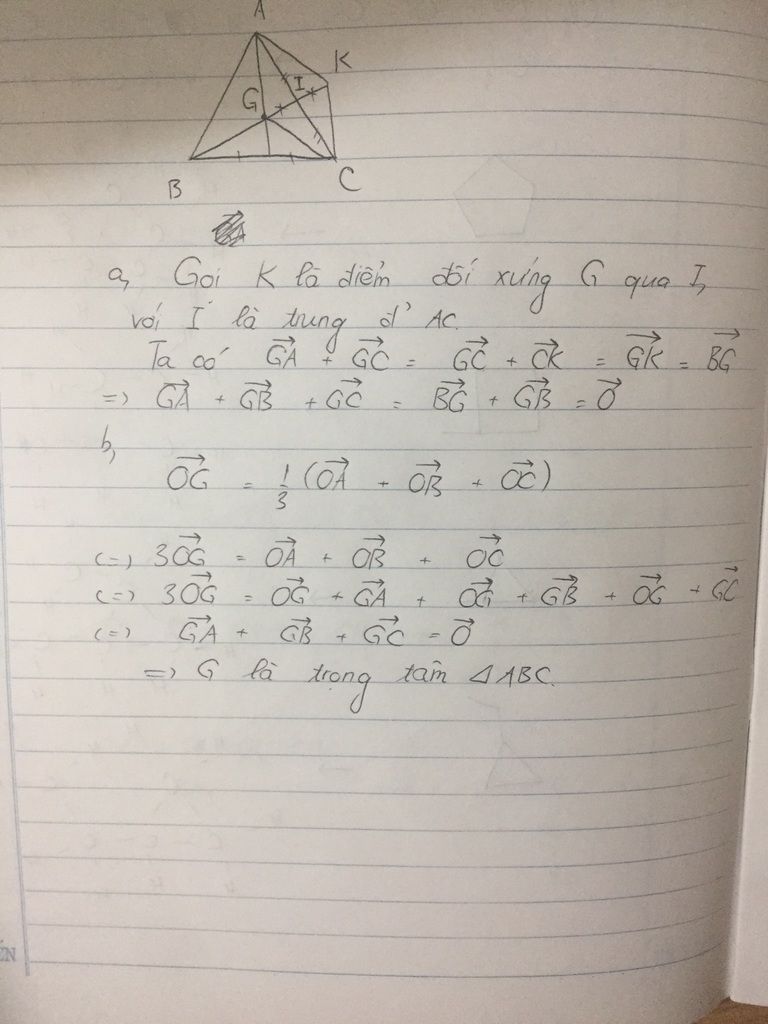 A
K
I
G
B
C
a, Gọi K là điểm đối xứng G qua I,
với I là trung đ' AC.
Ta có $\overrightarrow{GA} + \overrightarrow{GC} = \overrightarrow{GC} + \overrightarrow{CK} = \overrightarrow{GK} = \overrightarrow{BG}$
=> $\overrightarrow{GA} + \overrightarrow{GB} + \overrightarrow{GC} = \overrightarrow{BG} + \overrightarrow{GB} = \overrightarrow{O}$
b,
$\overrightarrow{OG} = \frac{1}{3} (\overrightarrow{OA} + \overrightarrow{OB} + \overrightarrow{OC})$
(=) $3\overrightarrow{OG} = \overrightarrow{OA} + \overrightarrow{OB} + \overrightarrow{OC}$
(=) $3\overrightarrow{OG} = \overrightarrow{OG} + \overrightarrow{GA} + \overrightarrow{OG} + \overrightarrow{GB} + \overrightarrow{OG} + \overrightarrow{GC}$
(=) $\overrightarrow{GA} + \overrightarrow{GB} + \overrightarrow{GC} = \overrightarrow{O}$
=> G là trọng tâm ΔABC.